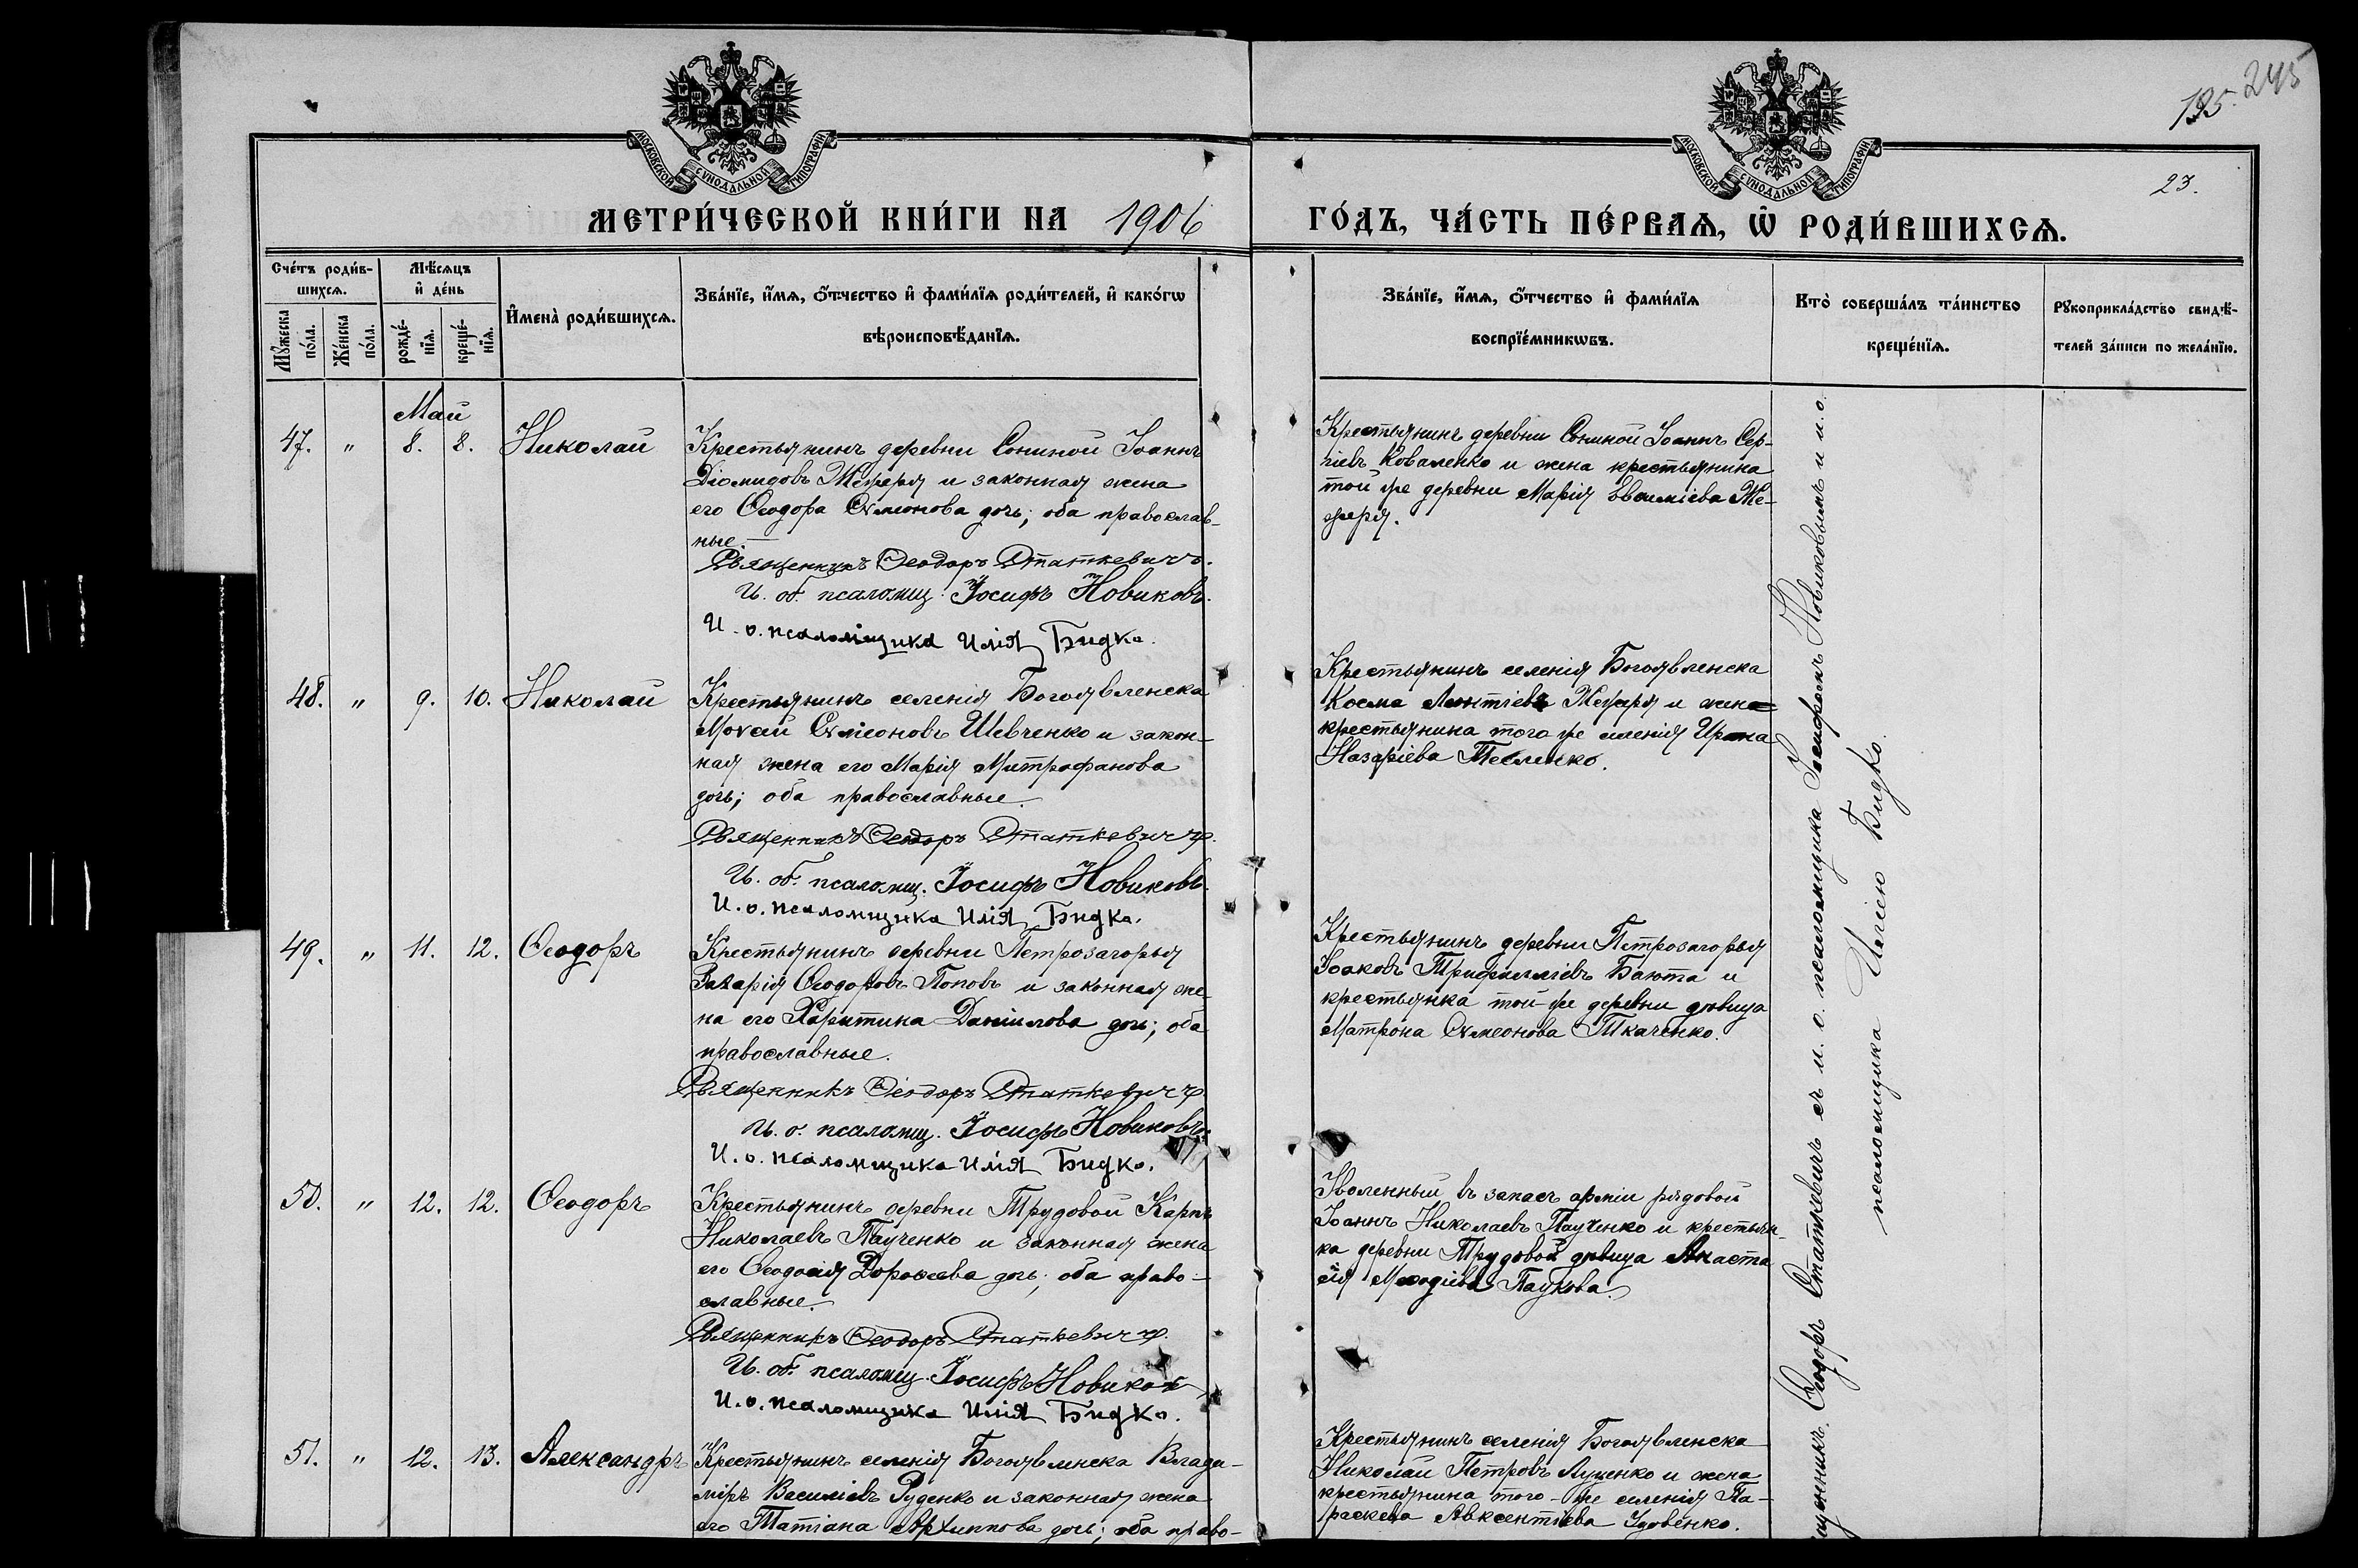 195. 245
23.
МОСКОВСКОЙ СѴНОДАЛЬНОЙ ТИПОГРАФІИ
МОСКОВСКОЙ СѴНОДАЛЬНОЙ ТИПОГРАФІИ
МЕТРИ́ЧЕСКОЙ КНИ́ГИ НА 1906 ГО́ДЪ, ЧА́СТЬ ПЕ́РВАѦ, Ѡ҆ РОДИ́ВШИХСѦ.
Сче́тъ роди́в-
шихсѧ.
Мꙋ́жеска по́ла.
Же́нска по́ла.
Мѣ́сѧцъ
и҆ де́нь
рожде́-нїѧ.
креще́-нїѧ.
И҆мена̀ роди́вшихсѧ.
Зва́нїе, и҆́мѧ, ѻ҆́тчество и҆ фами́лїѧ роди́телей, и҆ како́гѡ
вѣроисповѣ́данїѧ.
Зва́нїе, и҆́мѧ, ѻ҆́тчество и҆ фами́лїѧ
воспрїе́мникѡвъ.
Кто̀ соверша́лъ та́инство
креще́нїѧ.
Рꙋкоприкла́дство свидѣ́-
телей за́писи по жела́нїю.
Май
47. " 8. 8. Николай
Крестьянинъ деревни Сониной Іоаннъ
Діомидовъ Жежеря и законная жена
его Ѳеодора Сѵмеонова дочь; оба православ-
ные.—
Священникъ Ѳеодоръ Статкевичъ.
И. об. псаломщ. Іосифъ Новиковъ.
И. о. псаломщика Илія Бидко.
Крестьянинъ деревни Сониной Іоаннъ Сер-
гіевъ Коваленко и жена крестьянина
той же деревни Марія Евѳиміева Же-
жеря.
48. " 9. 10. Николай
Крестьянинъ селенія Богоявленска
Мокей Сѵмеоновъ Шевченко и закон-
ная жена его Марія Митрофанова
дочь; оба православные.
Священникъ Ѳеодоръ Статкевичъ.
И. об. псаломщ. Іосифъ Новиковъ.
И. о. псаломщика Илія Бидко.
Крестьянинъ селенія Богоявленска
Косма Леонтіевъ Жежеря и жена
крестьянина того же селенія Ирина
Назаріева Тесленко.
49. " 11. 12. Ѳеодоръ
Крестьянинъ деревни Петрозагорья
Захарія Ѳеодоровъ Поповъ и законная же-
на его Харитина Даніилова дочь; оба
православные.
Священникъ Ѳеодоръ Статкевичъ
И. о. псаломщ. Іосифъ Новиковъ.
И. о. псаломщика Илія Бидко.
Крестьянинъ деревни Петрозагорья
Іоаковъ Трифилліевъ Баюта и
крестьянка той-же деревни дѣвица
Матрона Сѵмеонова Ткаченко.
50. " 12. 12. Ѳеодоръ
Крестьянинъ деревни Трудовой Карпъ
Николаевъ Паученко и законная жена
его Ѳеодосія Дороѳеева дочь; оба право-
славные.
Священникъ Ѳеодоръ Статкевичъ.
И. об. псаломщ. Іосифъ Новиковъ
И. о. псаломщика Илія Бидко.
Уволенный въ запасъ арміи рядовой
Іоаннъ Николаевъ Паученко и крестьян-
ка деревни Трудовой дѣвица Анаста
сія Меѳодіева Паукова.
51. " 12. 13. Александръ
Крестьянинъ селенія Богоявленска Влади-
міръ Василіевъ Руденко и законная жена
его Татіана Архиппова дочь; оба право-
Крестьянинъ селенія Богоявленска
Николай Петровъ Луценко и жена
крестьянина того-же селенія Па-
раскева Авксентіева Удовенко.
Ѳеодоръ Статкевичъ съ и. о. псаломщика Іосифомъ Новиковымъ и и. о.
псаломщика Иліею Бидко.